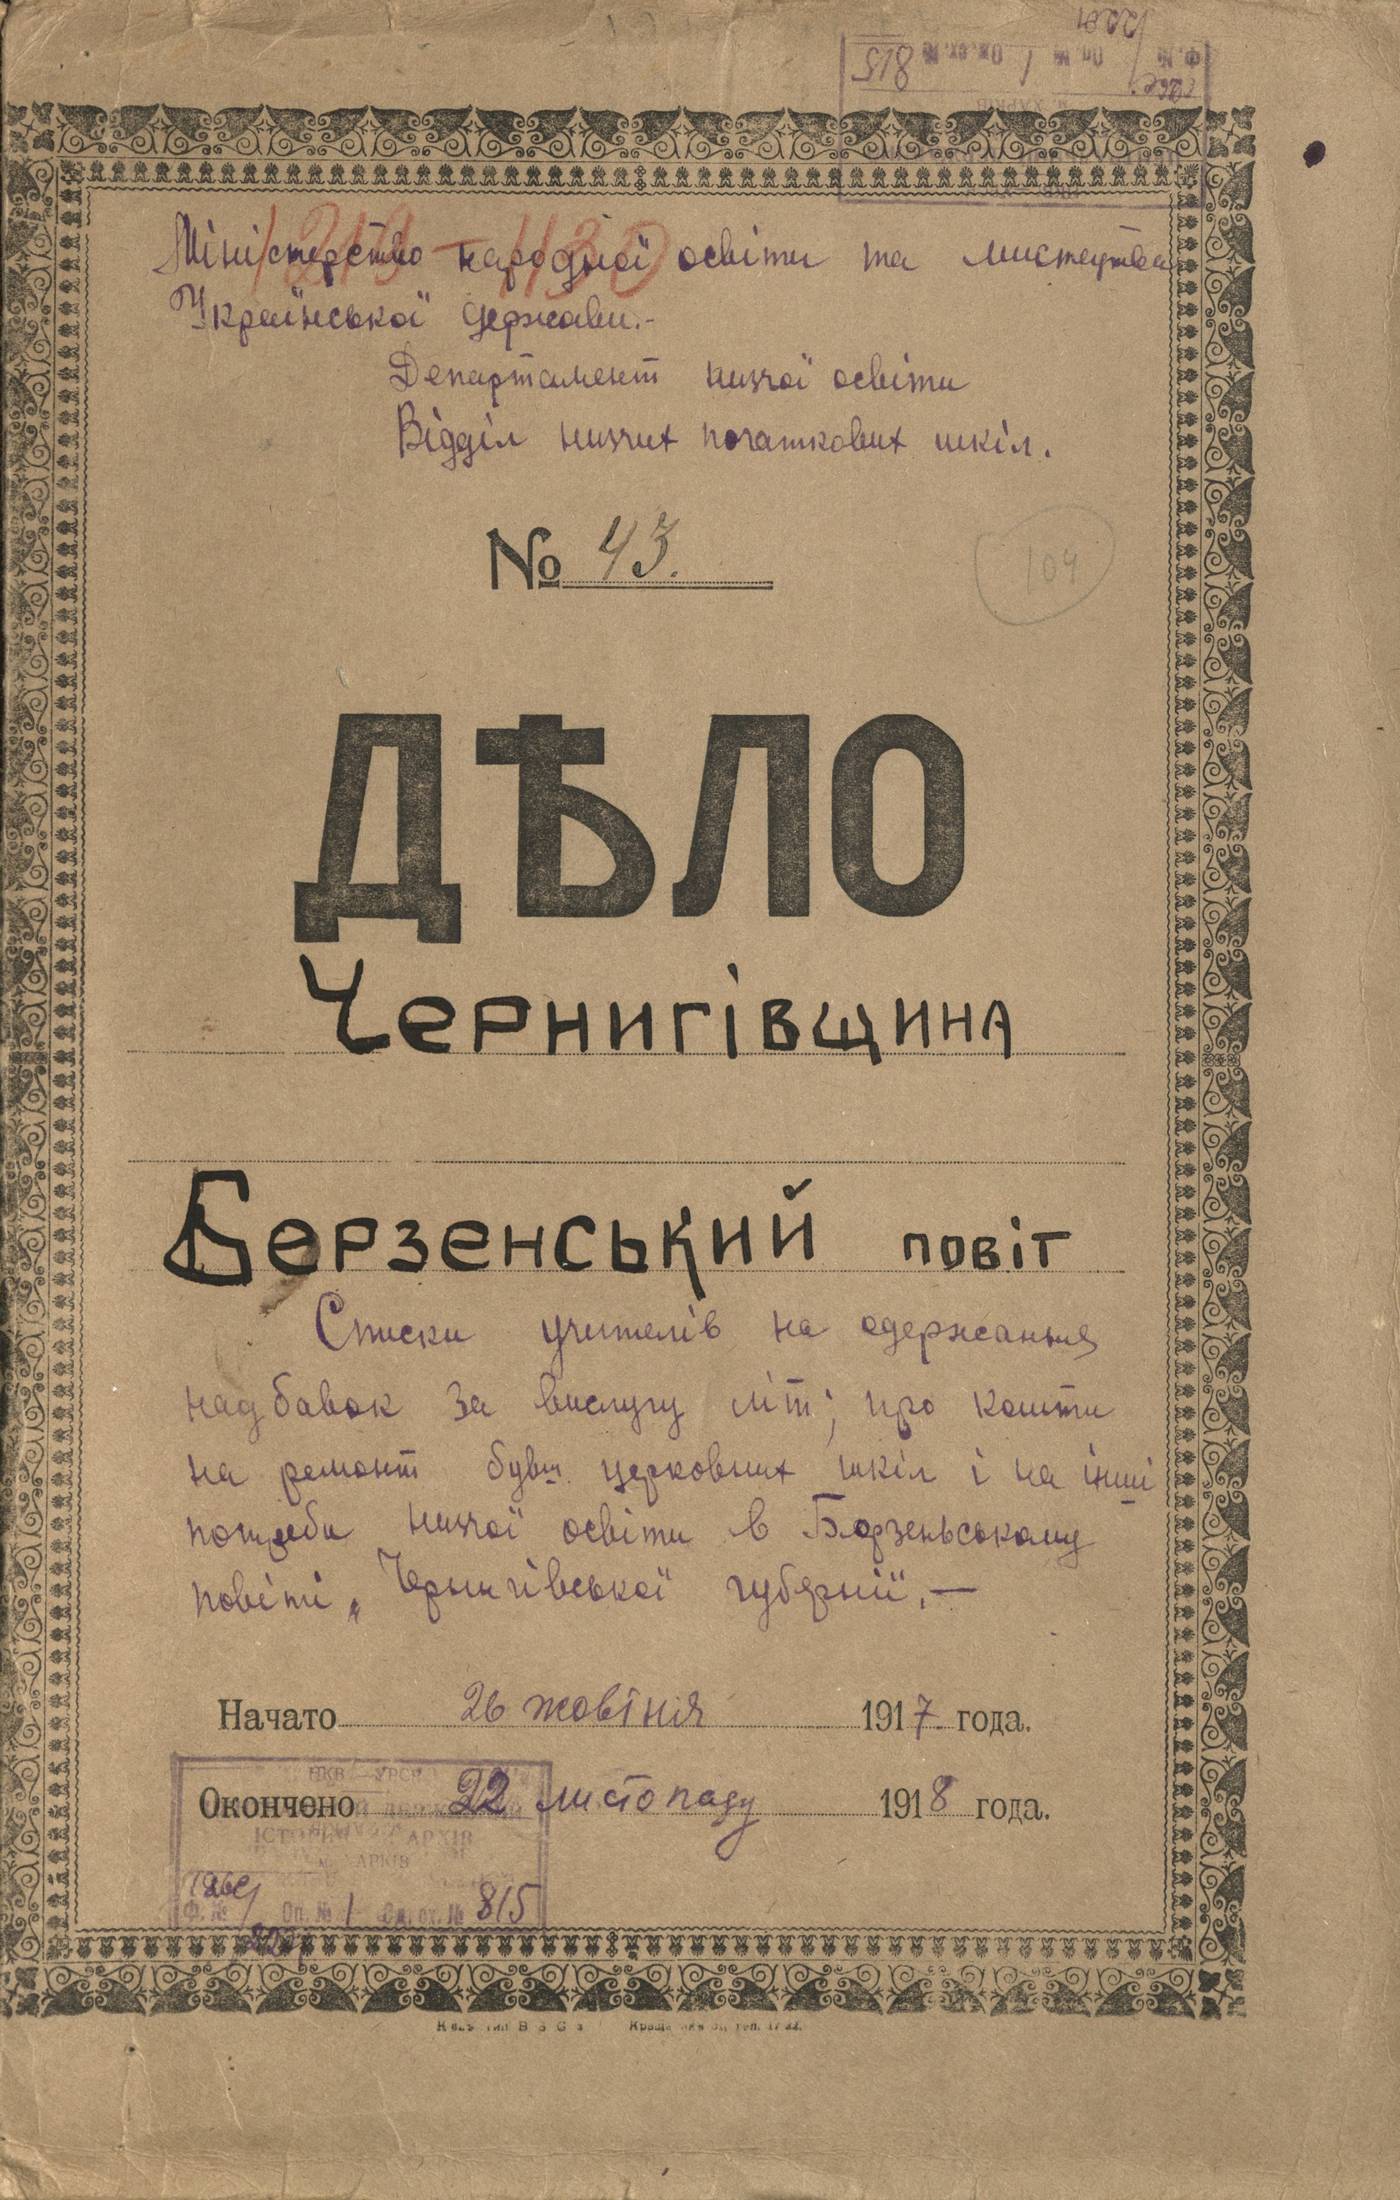 Міністерство народної освіти та мистецтва
Української Держави.-
Департамент низчої освіти
Відділ низчих початкових шкіл.
№ 43.
104
ДѢЛО
Чернигівщина
Берзенський повіт
Списки учителів на одержання
надбавок за вислугу літ; про кошти
на ремонт бувш. церковних шкіл і на інші
потреби низчої освіти в Борзенському
повіті „Чернигівської губернії".—
Начато 26 жовтня 1917 года.
Окончено 22 листопаду 1918 года.
НКВ УРСР
АРХІВ
Ф. № Оп. № 1 Од. сх. № 815